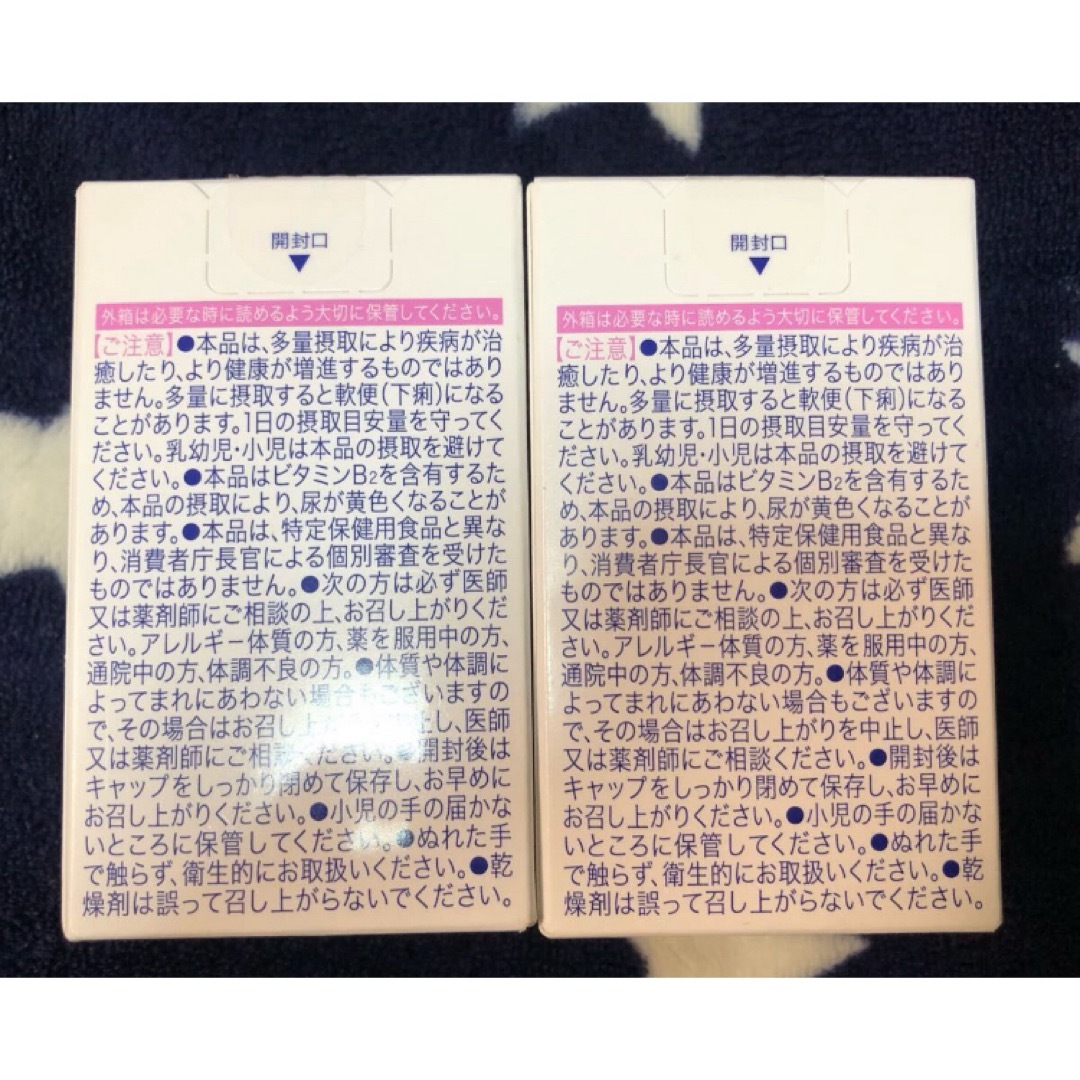 開封口
外箱は必要な時に読めるよう大切に保管してください。
【ご注意】●本品は、多量摂取により疾病が治
癒したり、より健康が増進するものではあり
ません。多量に摂取すると軟便(下痢)になる
ことがあります。1日の摂取目安量を守ってく
ださい。乳幼児・小児は本品の摂取を避けて
ください。●本品はビタミンB2を含有するた
め、本品の摂取により、尿が黄色くなることが
あります。●本品は、特定保健用食品と異な
り、消費者庁長官による個別審査を受けた
ものではありません。●次の方は必ず医師
又は薬剤師にご相談の上、お召し上がりくだ
さい。アレルギー体質の方、薬を服用中の方、
通院中の方、体調不良の方。●体質や体調に
よってまれにあわない場合もございますの
で、その場合はお召し上 止し、医師
又は薬剤師にご相談ください。●開封後は
キャップをしっかり閉めて保存し、お早めに
お召し上がりください。●小児の手の届かな
いところに保管してください。●ぬれた手
で触らず、衛生的にお取扱いください。●乾
燥剤は誤って召し上がらないでください。
開封口
外箱は必要な時に読めるよう大切に保管してください。
【ご注意】●本品は、多量摂取により疾病が治
癒したり、より健康が増進するものではあり
ません。多量に摂取すると軟便(下痢)になる
ことがあります。1日の摂取目安量を守ってく
ださい。乳幼児・小児は本品の摂取を避けて
ください。●本品はビタミンB2を含有するた
め、本品の摂取により、尿が黄色くなることが
あります。●本品は、特定保健用食品と異な
り、消費者庁長官による個別審査を受けた
ものではありません。●次の方は必ず医師
又は薬剤師にご相談の上、お召し上がりくだ
さい。アレルギー体質の方、薬を服用中の方、
通院中の方、体調不良の方。●体質や体調に
よってまれにあわない場合もございますの
で、その場合はお召し上がりを中止し、医師
又は薬剤師にご相談ください。●開封後は
キャップをしっかり閉めて保存し、お早めに
お召し上がりください。●小児の手の届かな
いところに保管してください。●ぬれた手
で触らず、衛生的にお取扱いください。●乾
燥剤は誤って召し上がらないでください。